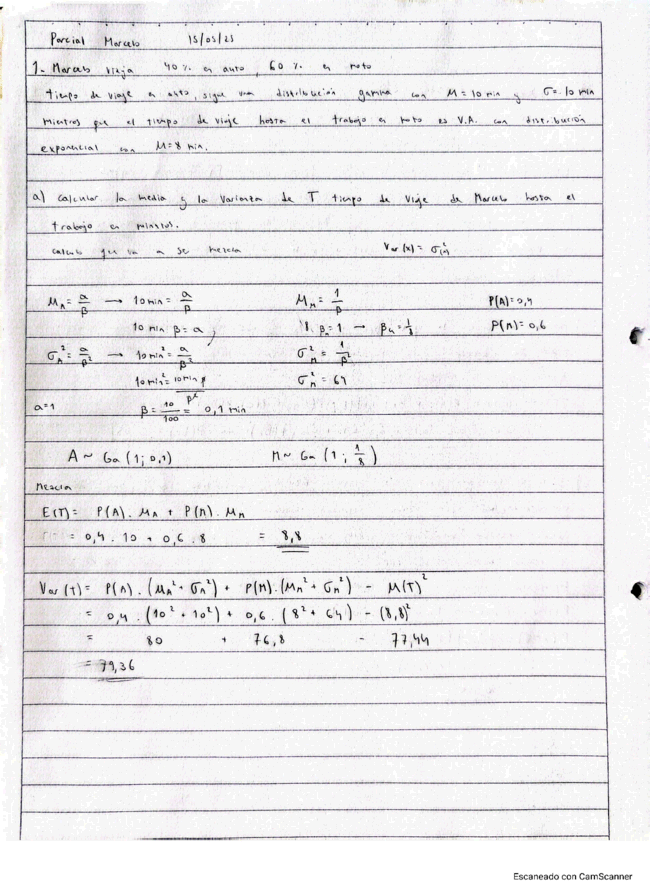 Parcial Marcelo 15/05/23
1- Marcelo viaja 40% en auto, 60% en moto
tiempo de viaje en auto, sigue una distribución gamma con M=10 min y σ=10 min
mientras que el tiempo de viaje hasta el trabajo en moto es V.A. con distribución
exponencial con M=8 min.
a) calcular la media y la varianza de T tiempo de viaje de Marcelo hasta el
trabajo en minutos.
calculo que va a ser mezcla Var(x)= σ²(x)
μA = a/β → 10min = a/β μM = 1/β P(A)=0,4
10 min β = a 8 βM = 1 → βM = 1/8 P(M)=0,6
σA² = a/β² → 10min² = a/β² σM² = 1/β²
10min² = 10min β/β² σM² = 64
a=1 β = 10/100 = 0,1 min
A ~ Ga (1; 0,1) M ~ Ga (1; 1/8)
Mezcla
E(T) = P(A). μA + P(M). μM
= 0,4 . 10 + 0,6 . 8 = 8,8
Var(T) = P(A). (μA² + σA²) + P(M). (μM² + σM²) - μ(T)²
= 0,4 . (10² + 10²) + 0,6 . (8² + 64) - (8,8)²
= 80 + 76,8 - 77,44
= 79,36
Escaneado con CamScanner